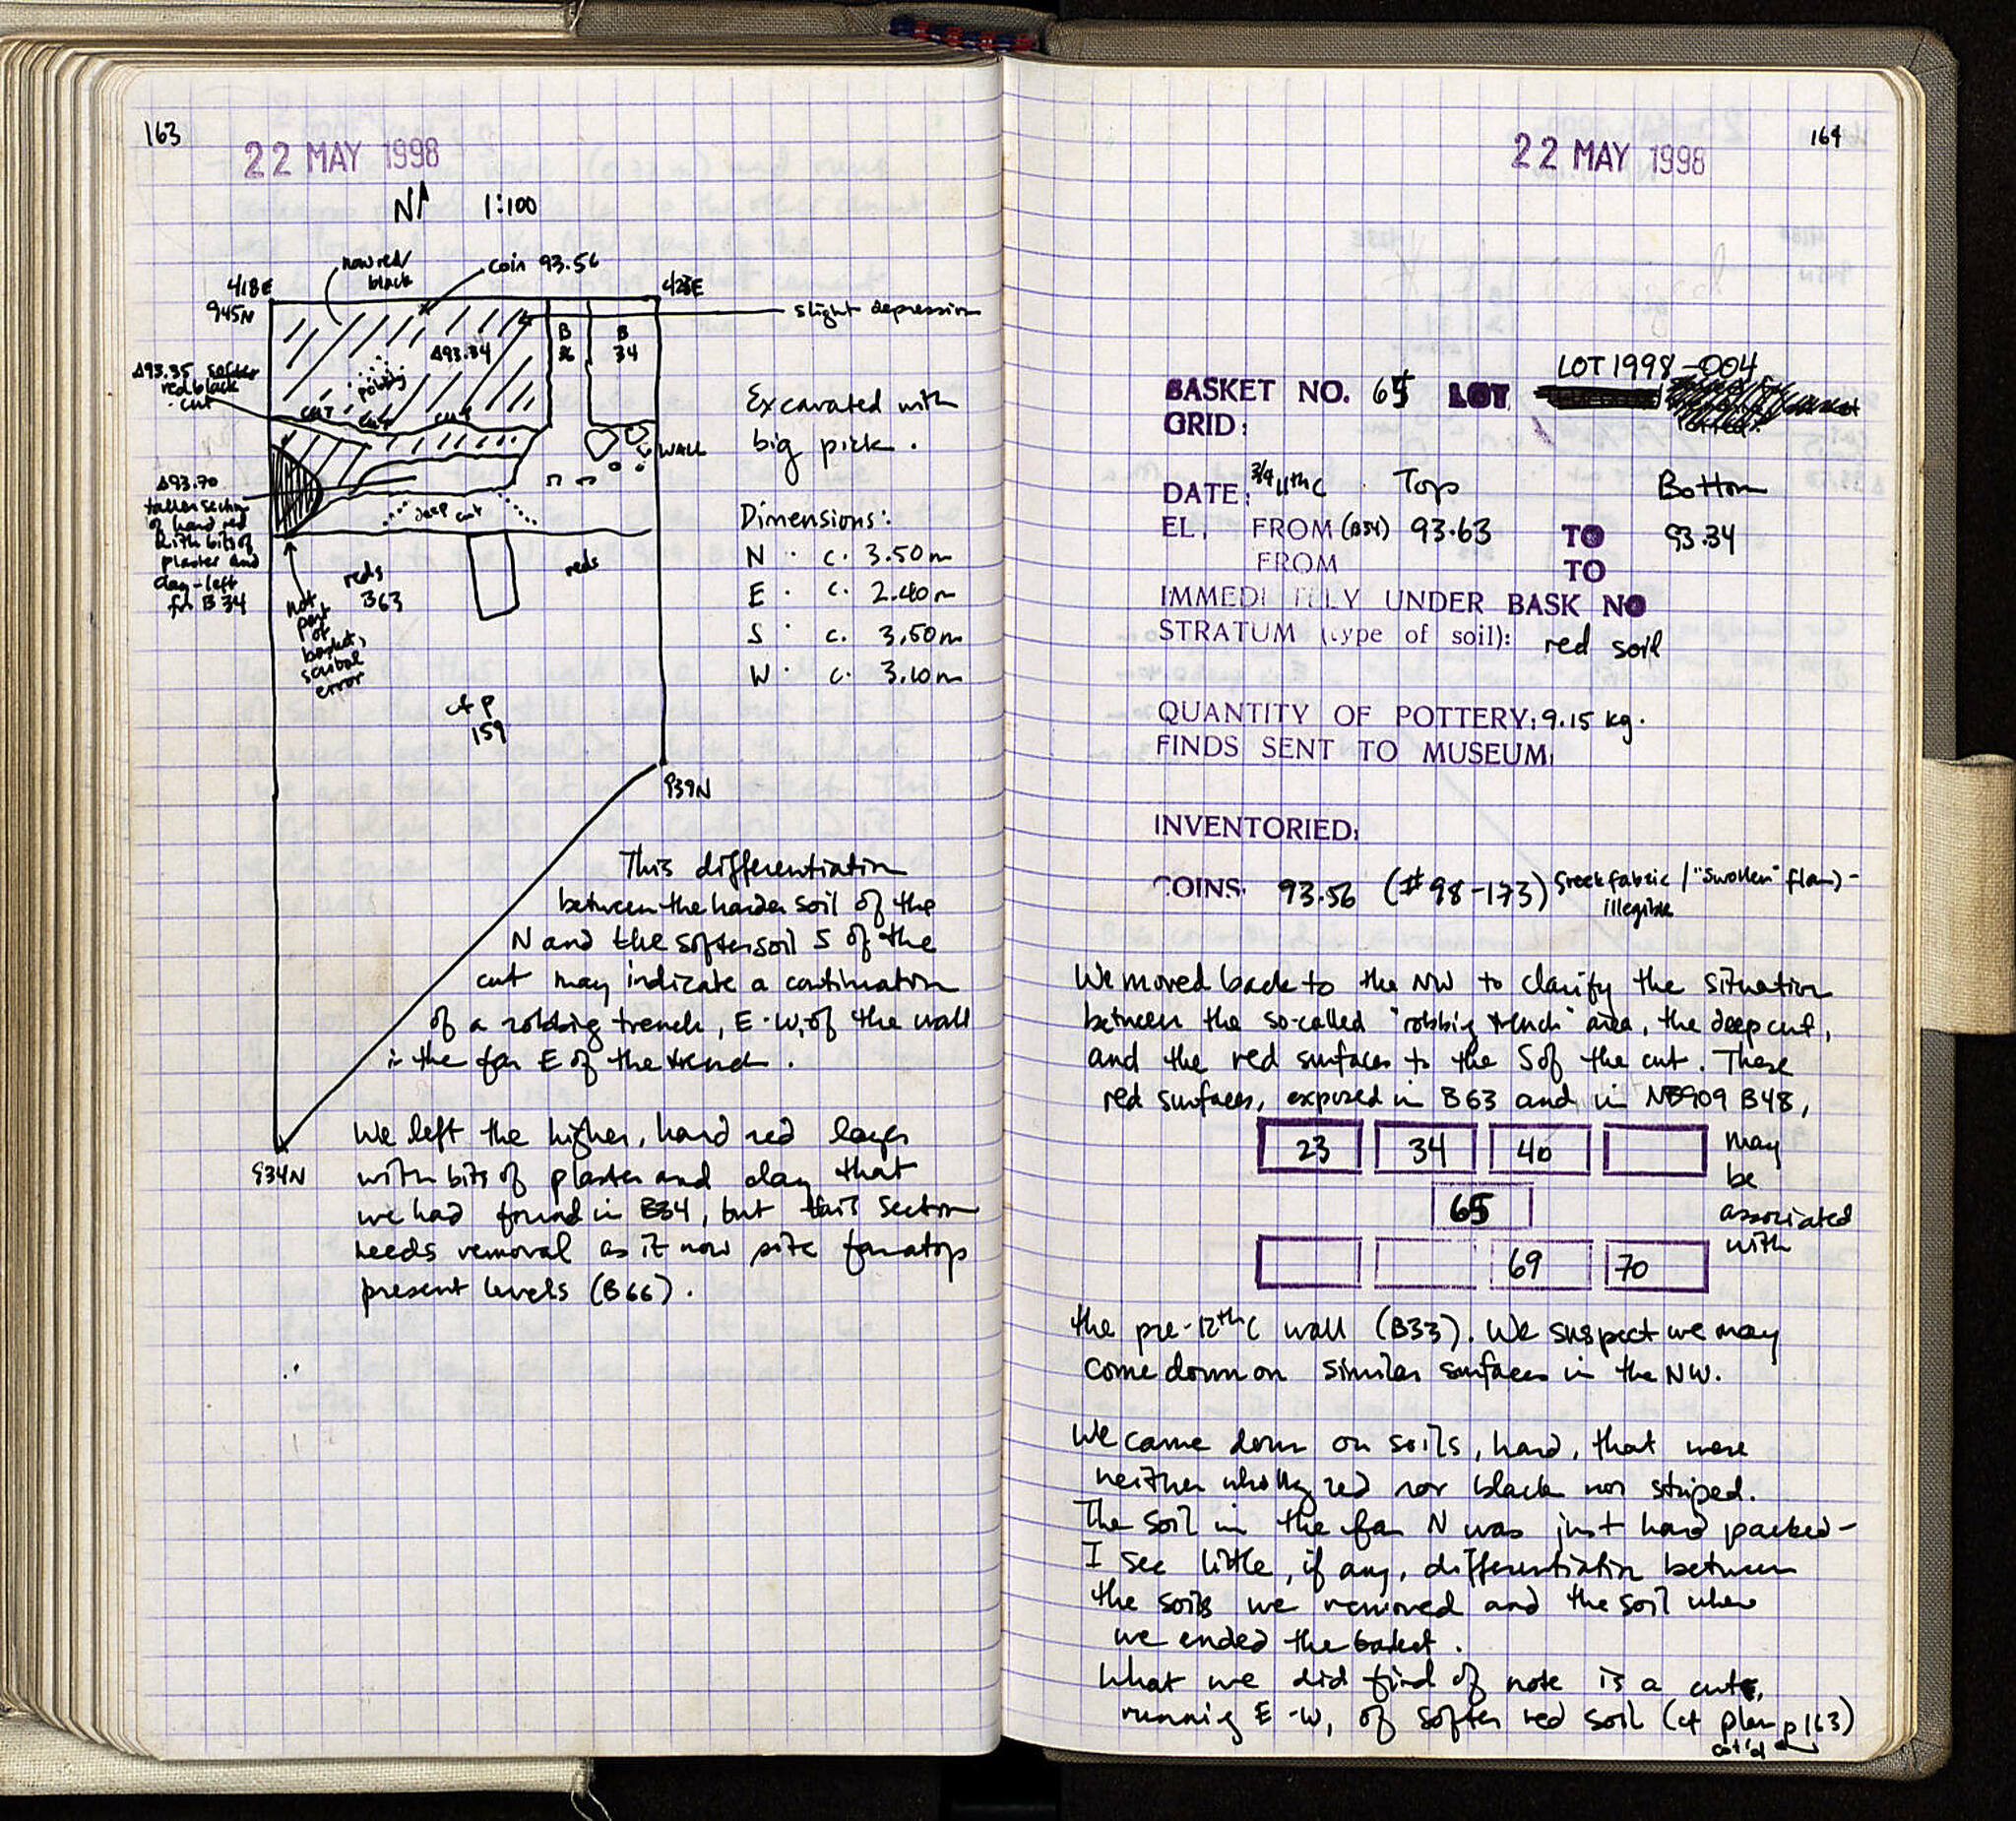 163
22 MAY 1998
N 1:100
now red/
black
coin 93.56
418E
428E
945N
slight depression
B
36
B
34
Δ93.34
pebbly
Δ93.35 softer
red black
cut
cut
cut
cut
WALL
Excavated with
big pick.
Δ93.70
taller section
of hard red
with bits of
plaster and
clay - left
fr B34
deep cut
Dimensions:
N . c. 3.50m
E . c. 2.40m
S . c. 3.50m
W . c. 3.10m
reds
B63
reds
not
part
of
basket,
scribal
error
cf p
159
939N
This differentiation
between the harder soil of the
N and the softer soil S of the
cut may indicate a continuation
of a robbing trench, E-W, of the wall
in the far E of the trench.
934N
We left the higher, hard red layer
with bits of plaster and clay that
we had found in B34, but this section
needs removal as it now sits far atop
present levels (B66).
164
22 MAY 1998
LOT 1998-004
BASKET NO. 65 LOT
GRID:
DATE: 3/4 11th C Top Bottom
EL. FROM (B34) 93.63 TO 93.34
FROM TO
IMMEDI TELY UNDER BASK NO
STRATUM (type of soil): red soil
QUANTITY OF POTTERY: 9.15 kg.
FINDS SENT TO MUSEUM:
INVENTORIED:
COINS: 93.56 (#98-173) Greek fabric / "swollen" flan) -
illegible
We moved back to the NW to clarify the situation
between the so-called "robbing trench" area, the deep cut,
and the red surfaces to the S of the cut. These
red surfaces, exposed in B63 and in NB909 B48,
23 34 40
may
be
65
associated
with
69 70
the pre-12th C wall (B33). We suspect we may
come down on similar surfaces in the NW.
We came down on soils, hard, that were
neither wholly red nor black nor striped.
The soil in the far N was just hard packed -
I see little, if any, differentiation between
the soils we removed and the soil where
we ended the basket.
What we did find of note is a cut,
running E-W, of softer red soil (cf plan p163)
cont'd